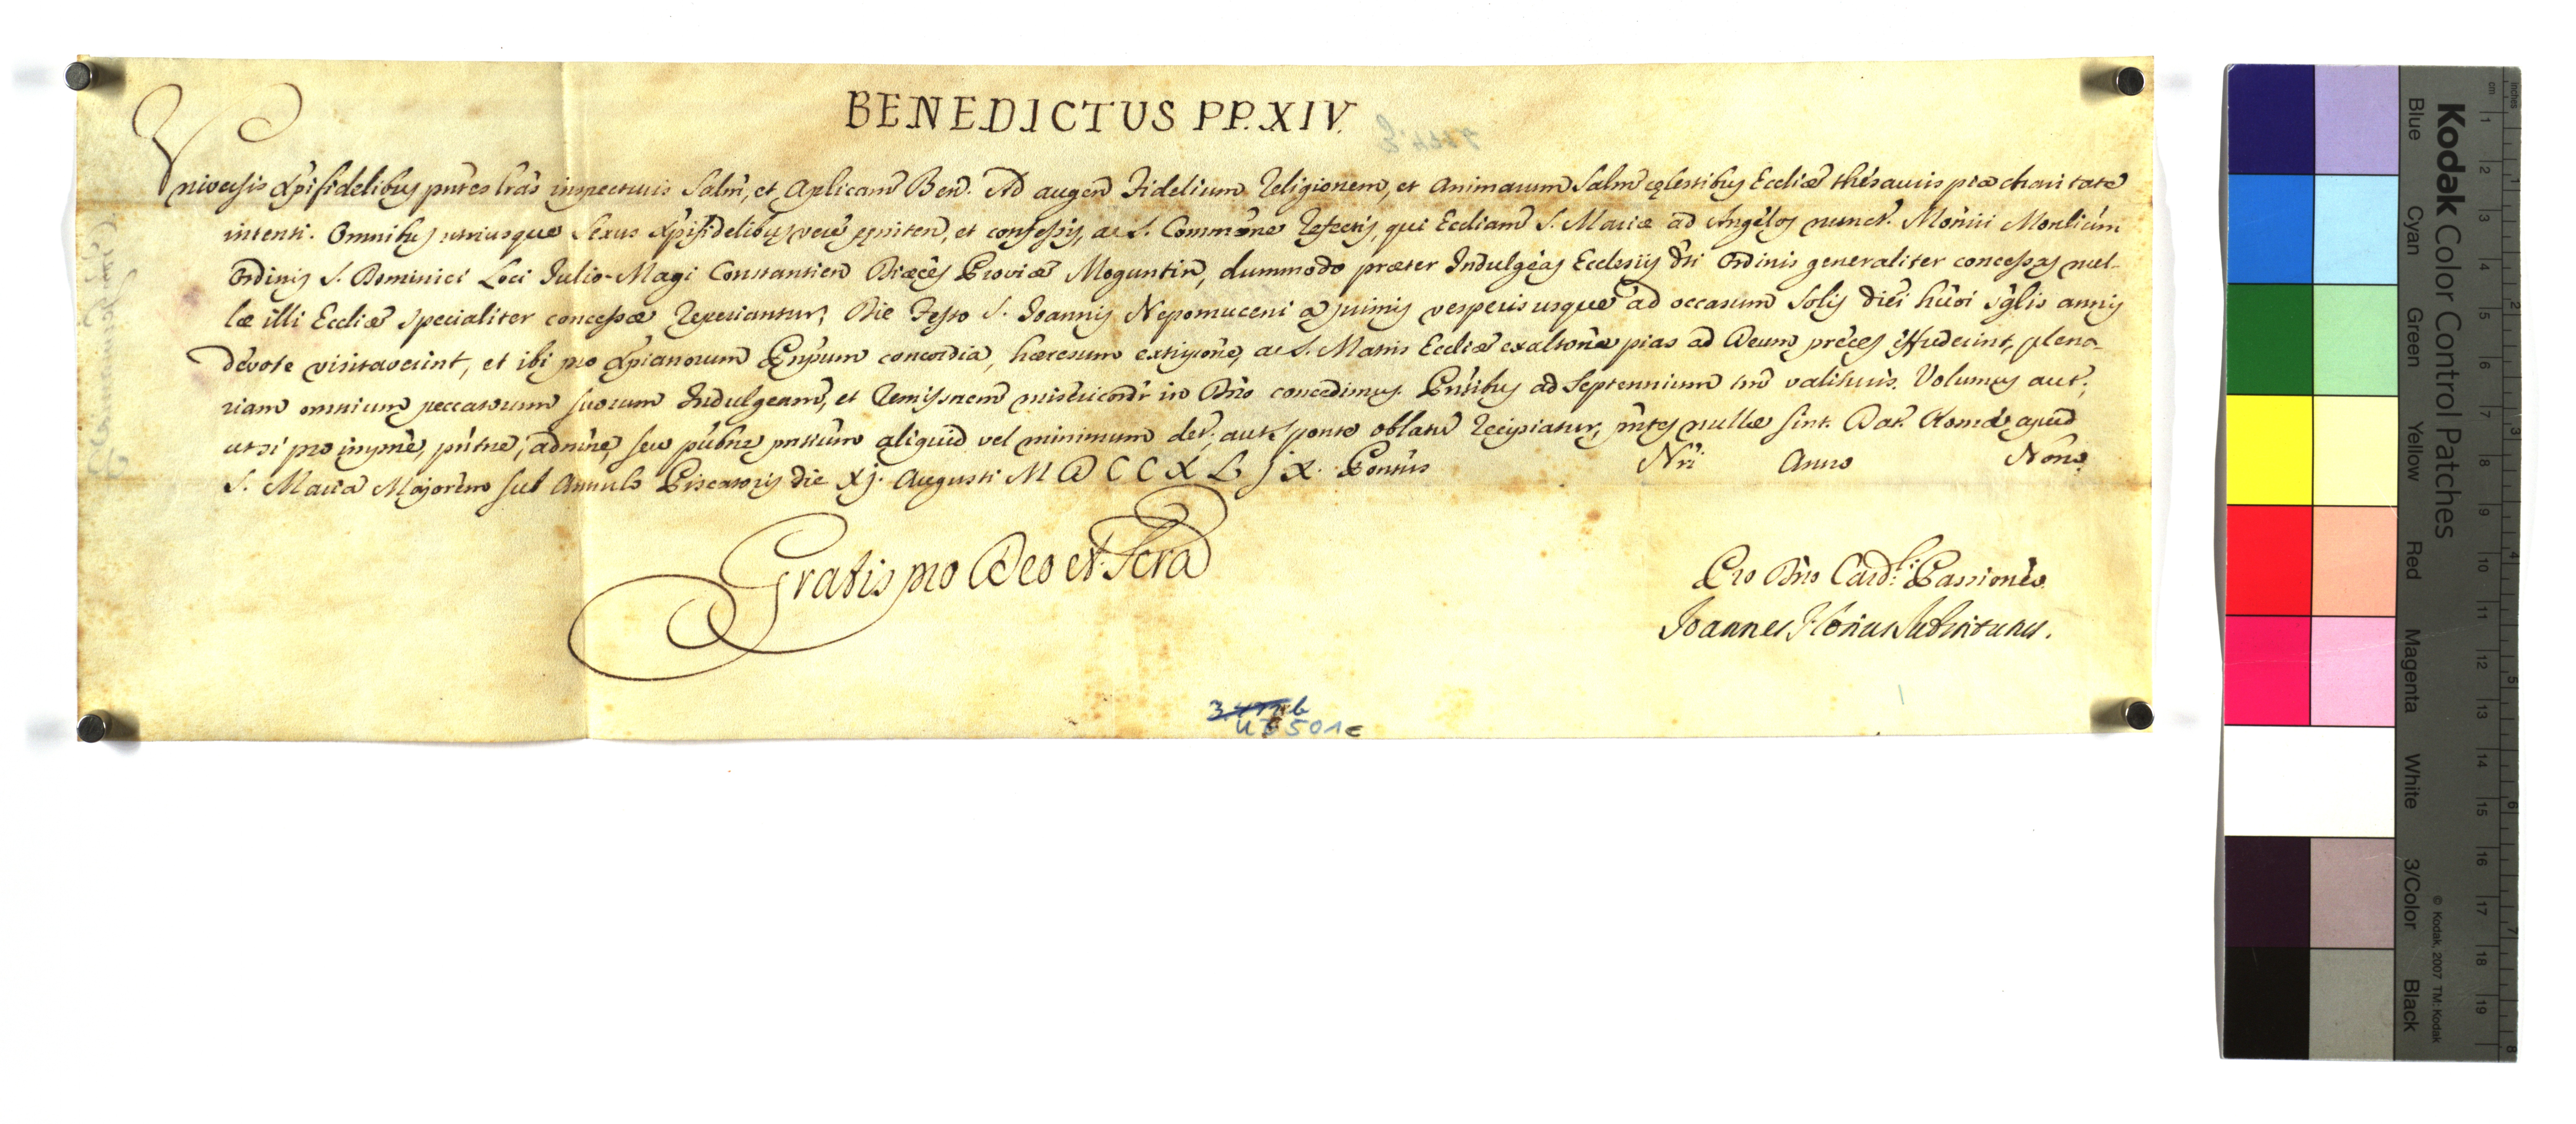 BENEDICTUS PP. XIV.
Universis Xpifidelibus pntes lras inspecturis Salm, et Aplicam Ben. Ad augen Fidelium Religionem, et Animarum Salm cęlestibus Eccliæ thesauris pia charitate
intenti. Omnibus utriusque Sexus Xpifidelibus vere pęniten, et confessis, ac S. Commone Refectis, qui Eccliam S. Mariæ ad Angelos nuncт. Monrii Monlium
Ordinis S. Dominici Loci Julio-Magi Constantien Diæces Provinæ Moguntin, dummodo præter Indulgeas Ecclesiis dti Ordinis generaliter concessas nul-
læ illi Eccliæ specialiter concessæ reperiantur, Die Festo S. Joannis Nepomuceni a primis vesperis usque ad occasum Solis diei huoi sglis annis
devote visitaverint, et ibi pro Xpianorum Pnpum concordia, hæresum extipone, ac S. Matris Eccliæ exaltone pias ad Deum preces effuderint, plena-
riam omnium peccatorum suorum Indulgeam, et Remissnem misericordr in Dno concedimus. Pntibus ad Septennium tm valituris. Volumus aut,
ut si pro impne, pntne, admne, seu publne pntium aliquid vel minimum det, aut sponte oblatu recipiatur, pntes nullæ sint. Dat. Romæ apud
S. Maria Majorem sub Annulo Piscatoris die XJ. Augusti MDCCXLJX. Pontus Nri Anno Nono.
Gratis pro Deo et Scra
Pro Dno Card.li Passioneo
Joannes Florius Substitutus.
UE 501e